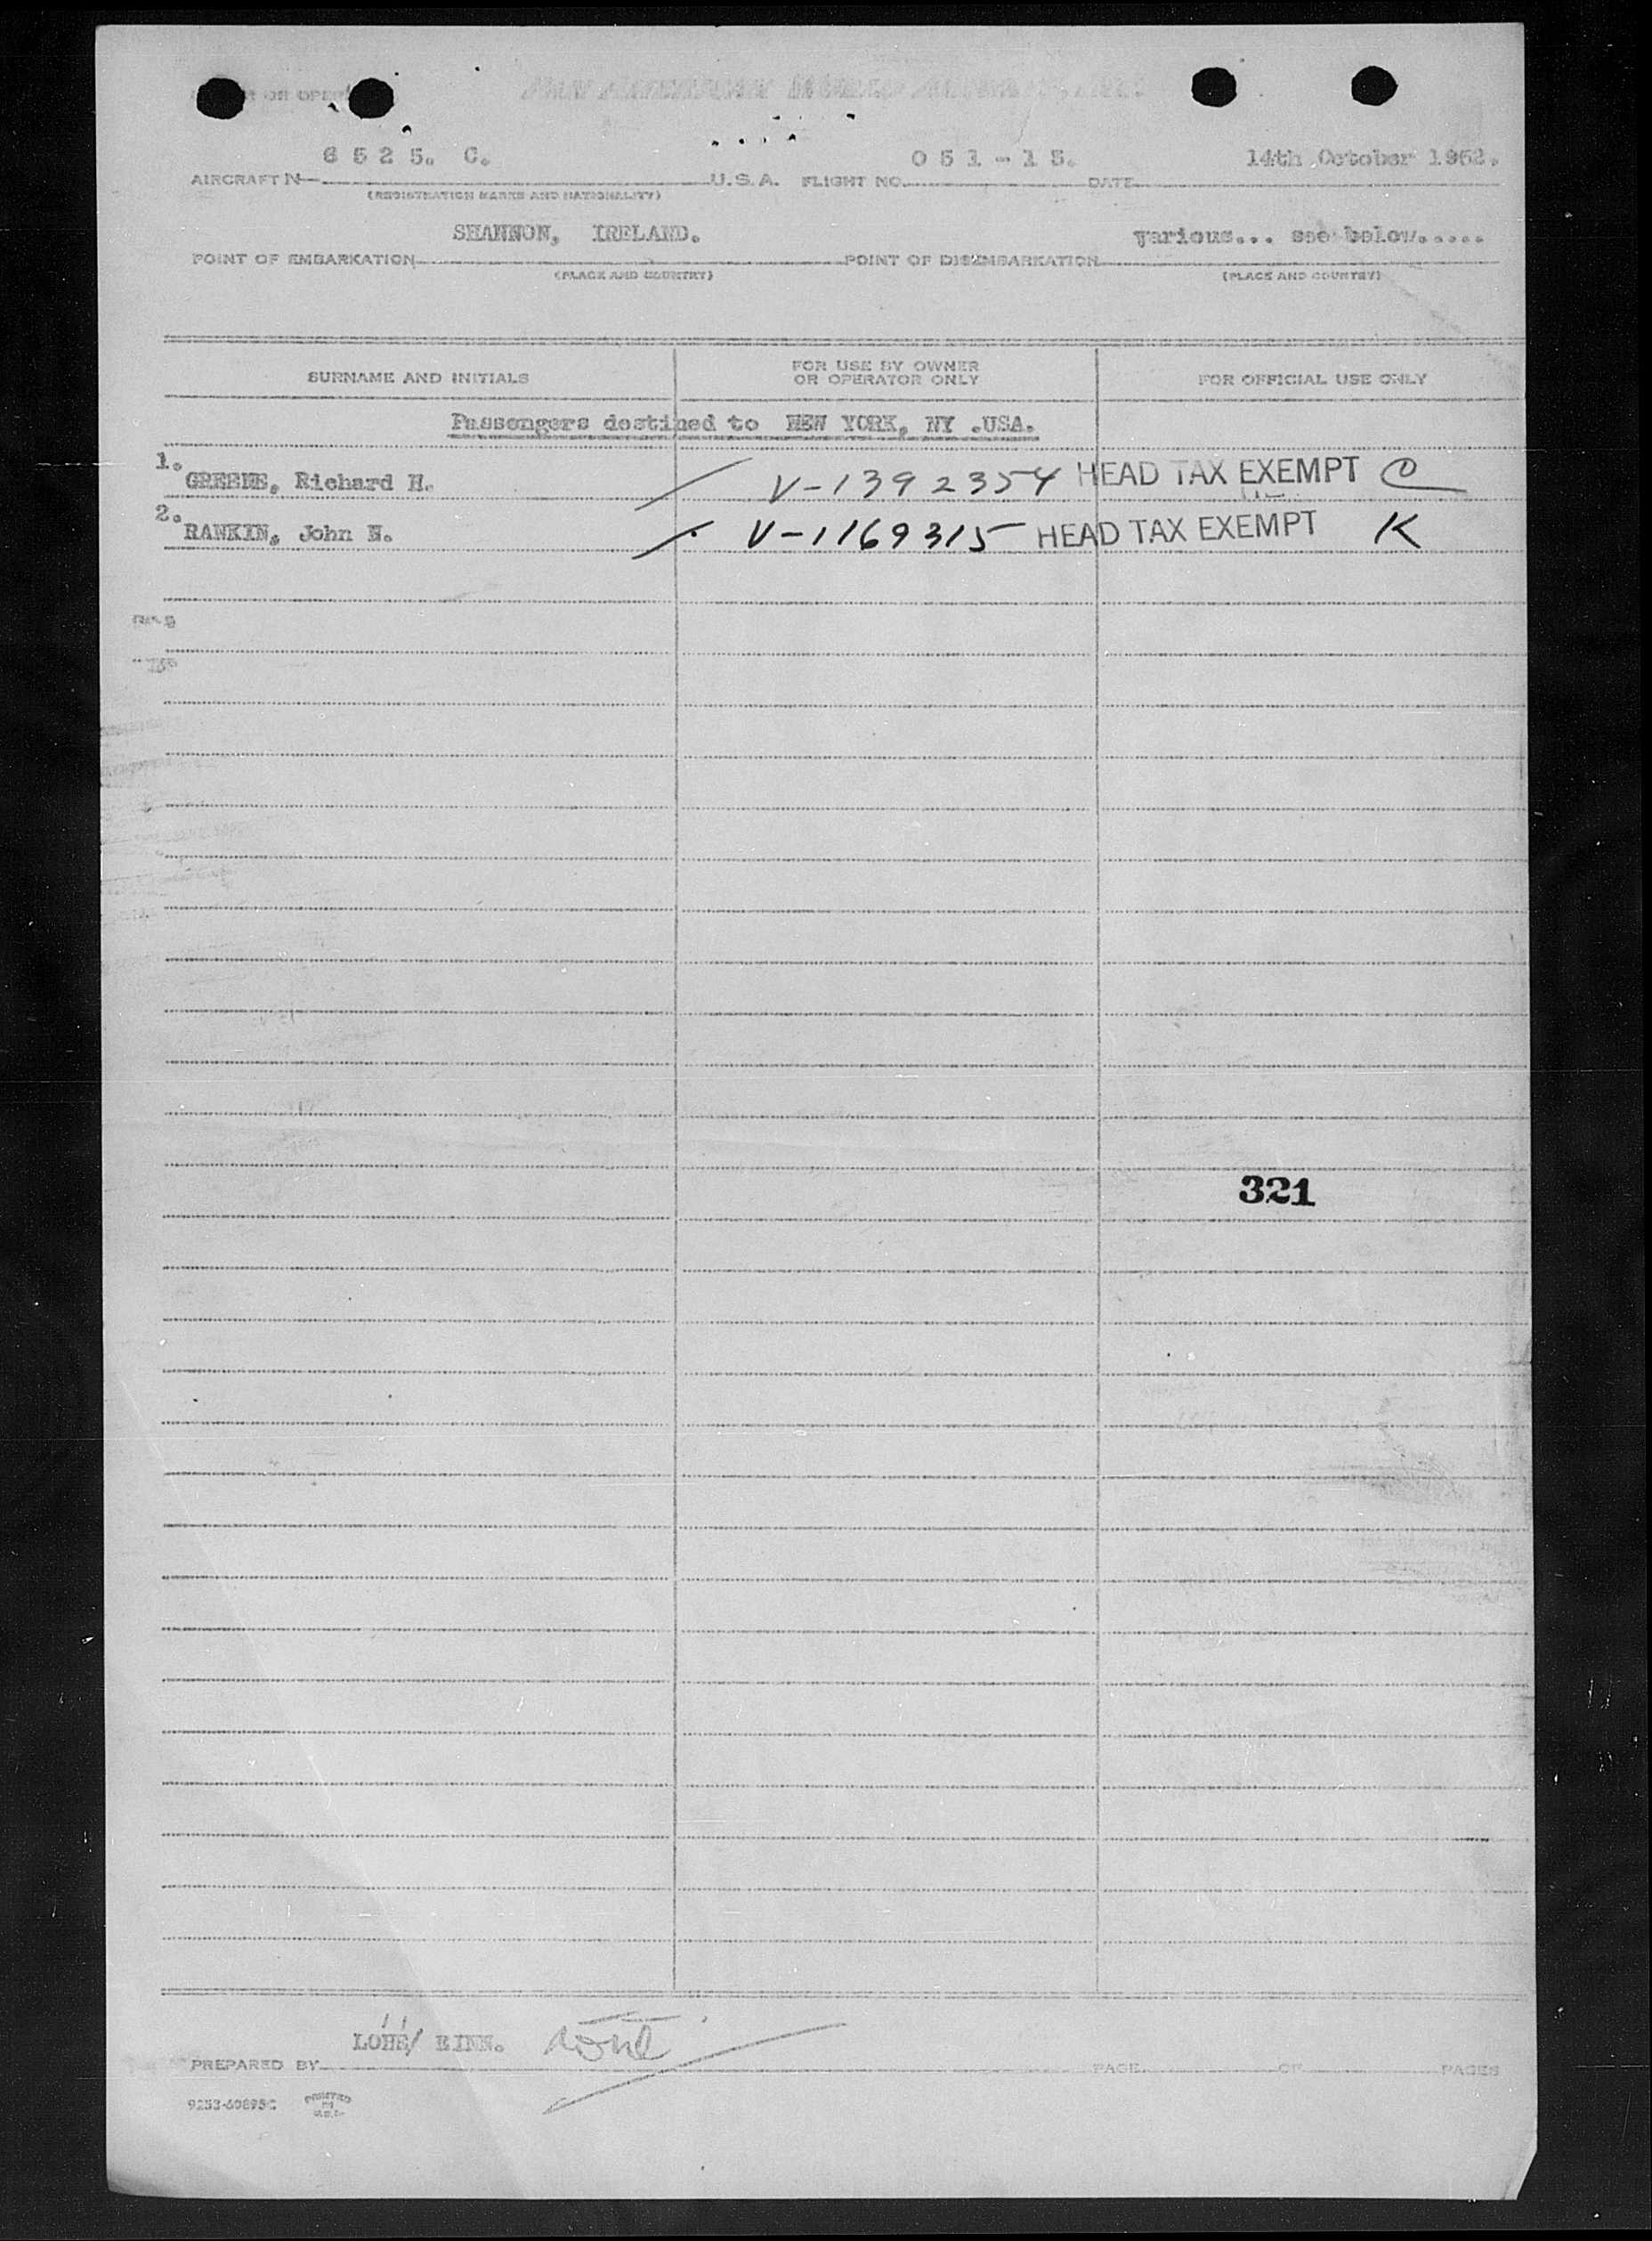 OR OPER
6 5 2 5. C. 0 5 1 - 1 5. 14th October 1952.
AIRCRAFT N U.S.A. FLIGHT NO. DATE
(REGISTRATION MARKS AND NATIONALITY)
SHANNON, IRELAND. various... see below.....
POINT OF EMBARKATION POINT OF DISEMBARKATION
(PLACE AND COUNTRY) (PLACE AND COUNTRY)
SURNAME AND INITIALS FOR USE BY OWNER OR OPERATOR ONLY FOR OFFICIAL USE ONLY
Passengers destined to NEW YORK, NY .USA.
1. GREENE, Richard H. V-1392354 HEAD TAX EXEMPT C
2. RANKIN, John N. V-1169315 HEAD TAX EXEMPT K
321
PREPARED BY PAGE OF PAGES
PRINTED
IN